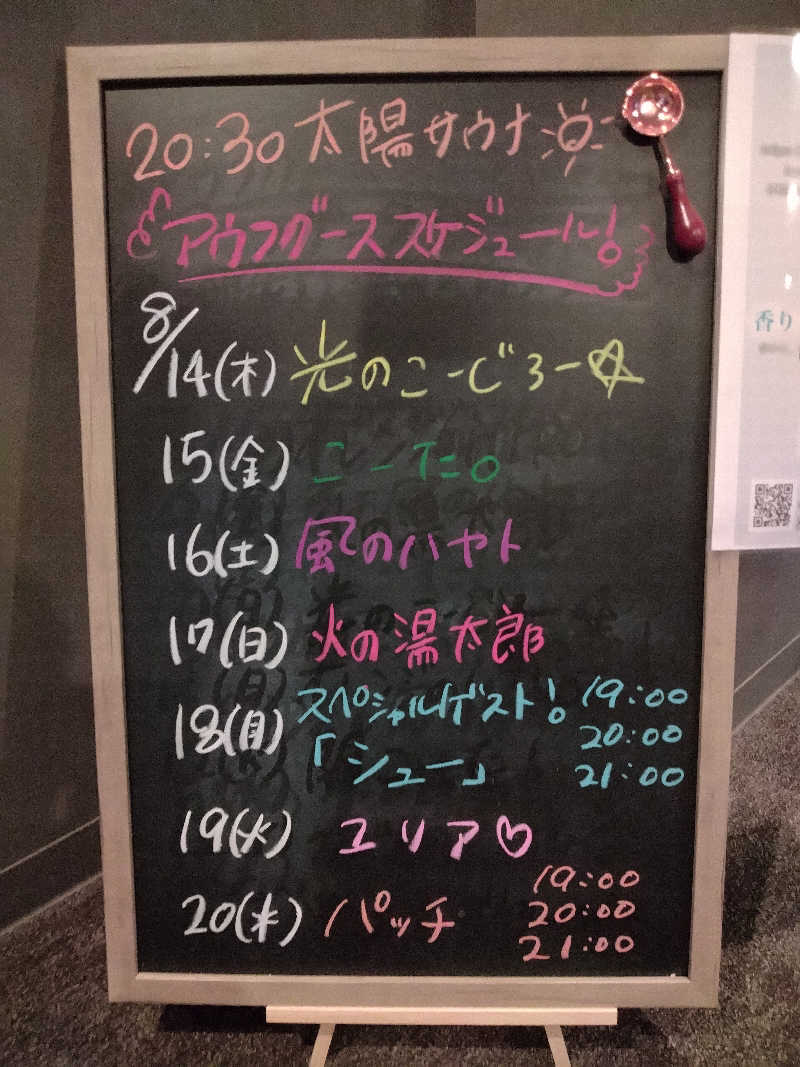 20:30 太陽サウナ
アウフグーススケジュール!
8/14(木) 光のこーじろー☆
15(金) こーTこ。
16(土) 風のハヤト
17(日) 火の湯太郎
18(月) スペシャルゲスト! 19:00
「シュー」 20:00
21:00
19(火) ユリア♡
20(水) パッチ 19:00
20:00
21:00
香り